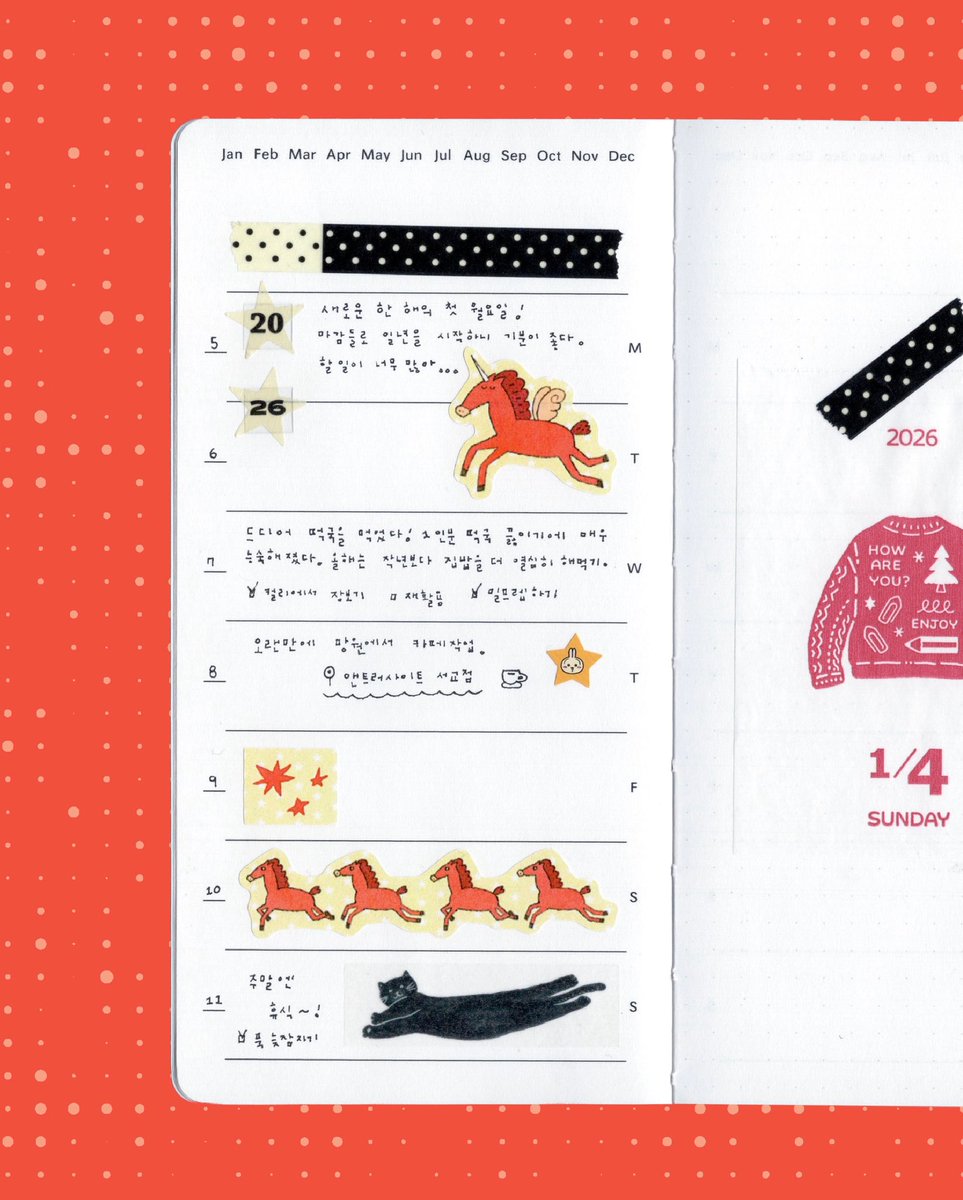 Jan Feb Mar Apr May Jun Jul Aug Sep Oct Nov Dec
20
26
5
새로운 한 해의 첫 월요일!
마감들로 일년을 시작하니 기분이 좋다.
할일이 너무 많아...
M
6
T
드디어 떡국을 먹었다! 1인분 떡국 끓이기에 매우
7
능숙해졌다. 올해는 작년보다 집밥을 더 열심히 해먹기.
W
컬리에서 장보기 재활용 밀프렙하기
오랜만에 망원에서 카페작업.
8
앤트러사이트 서교점
T
9
F
10
S
11
주말엔
휴식~!
푹 늦잠자기
S
2026
HOW
ARE
YOU?
ENJOY
1/4
SUNDAY